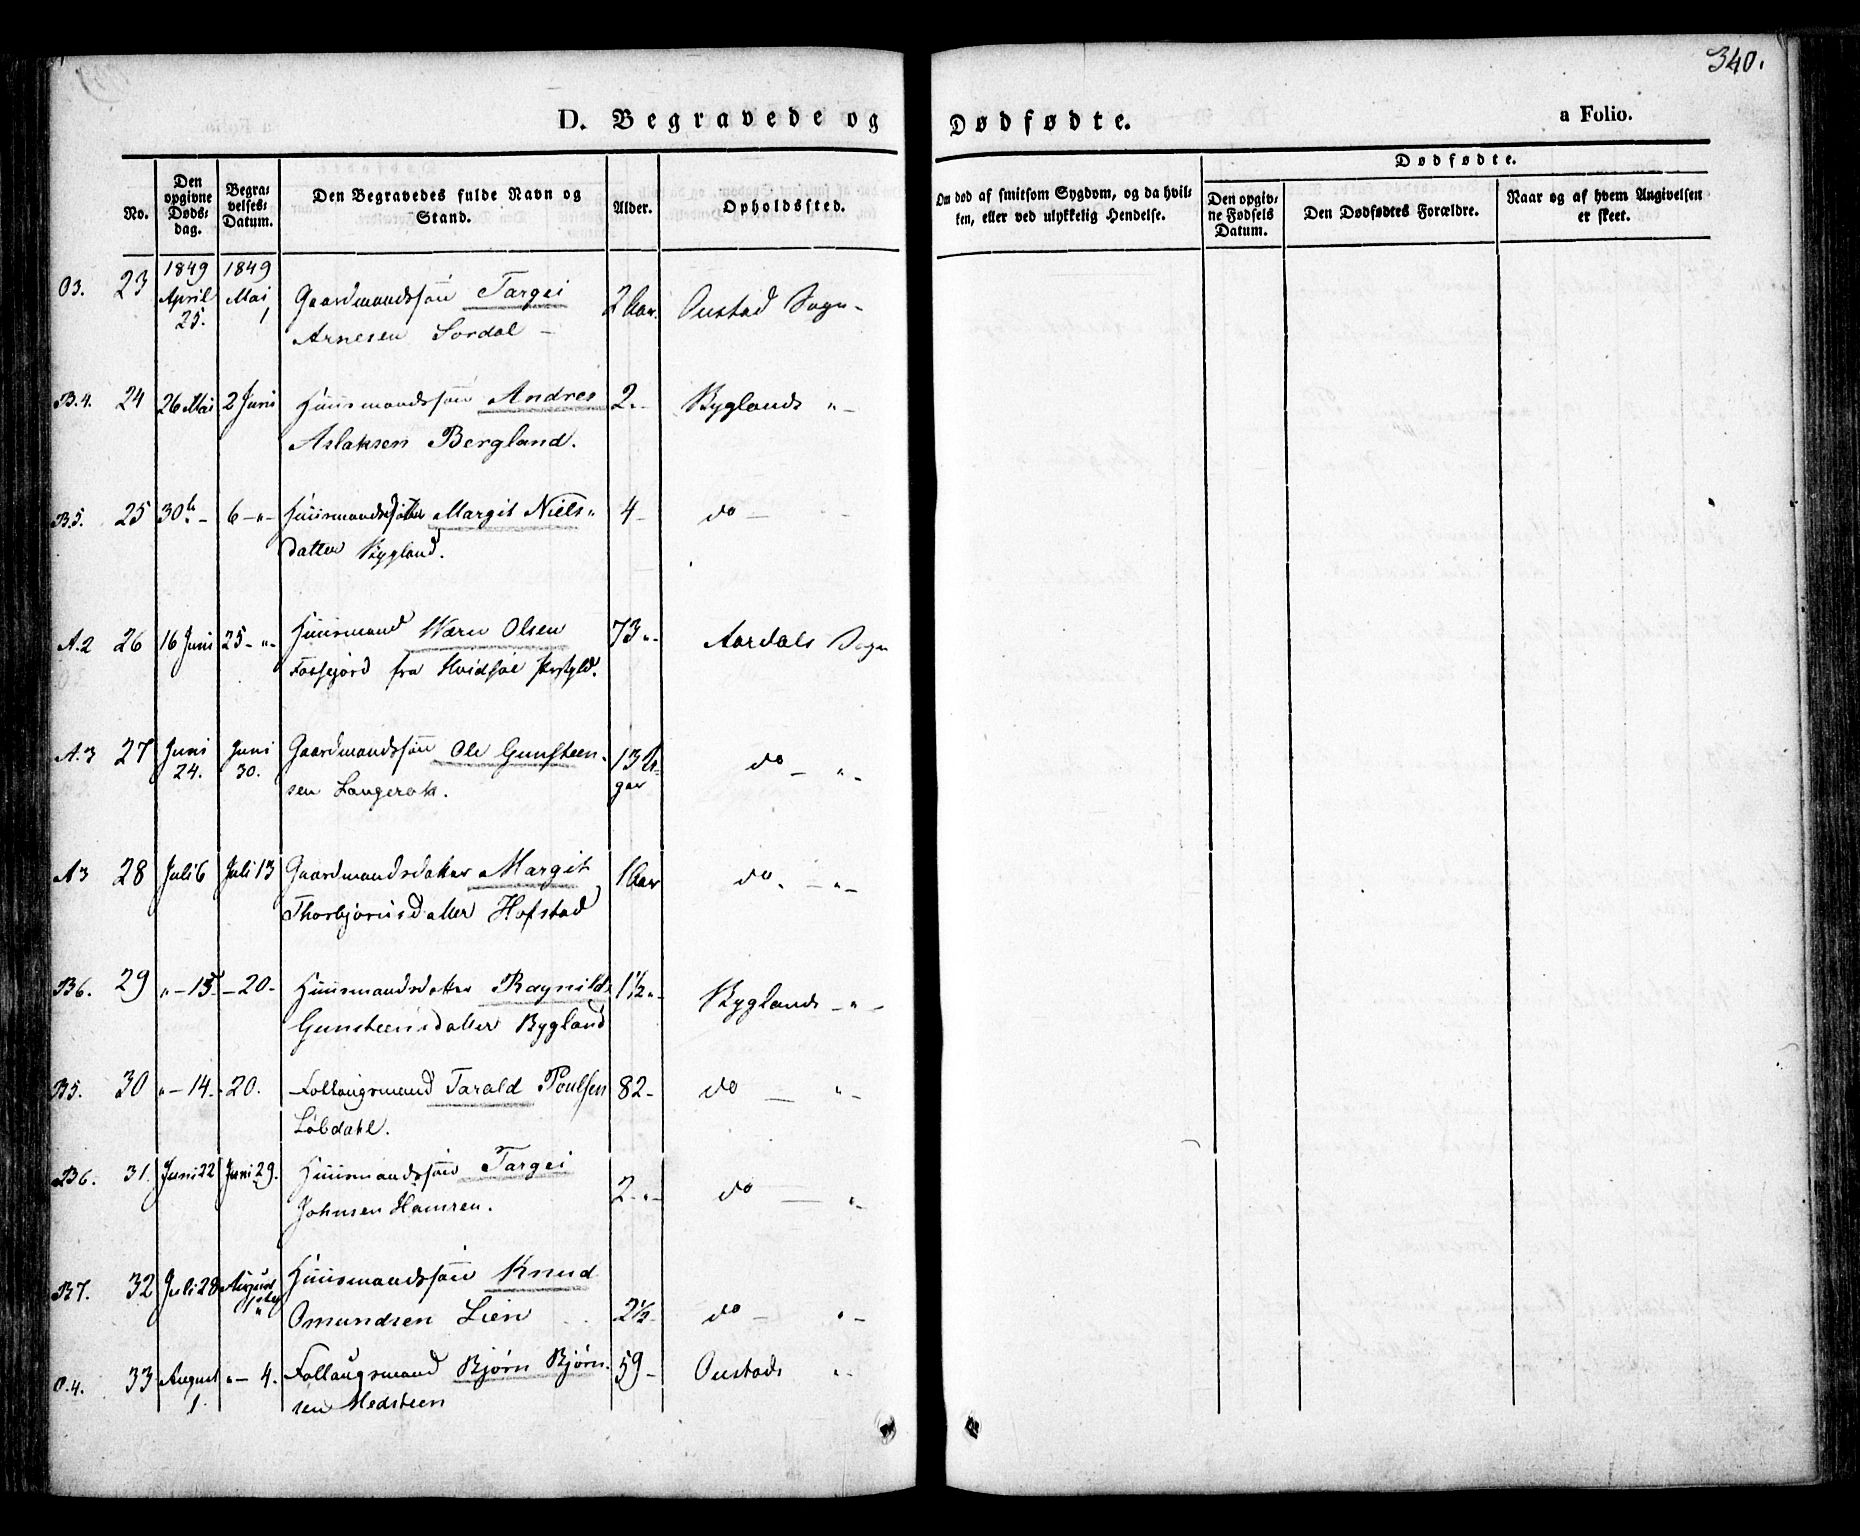 340.
D. Begravede og Dødfødte.
a Folio.
No.
Den opgivne Døds-dag.
Begra-velses-Datum.
Den Begravedes fulde Navn og Stand.
Alder.
Opholdssted.
Om død af smitsom Sygdom, og da hvil-
ken, eller ved ulykkelig Hendelse.
Dødfødte.
Den opgiv-ne Fødsels Datum.
Den Dødfødtes Forældre.
Naar og af hvem Angivelsen er skeet.
1849 1849
O3. 23 April 25. Mai 1 Gaardmandssøn Targei 2 Aar. Oustad Sogn-
Arnesen Sordal -
B.4. 24 26 Mai 2 Juni Huusmandssøn Andres 2.- Byglands "-
Aslaksen Bergland.
B5. 25 30te- 6-"- Huusmandsdatter Margit Niels- 4- do -
datter Bygland.
A.2 26 16 Juni 25-"- Huusmand Olsen 73"- Aardals Sogn
fra Hvidsøe
A.3 27 Juni 24. Juni 30. Gaardmandssøn Ole Gunsteen- 13 U-
ger do - "-
sen Langerak.
A3 28 Juli 6 Juli 13 Gaardmandsdatter Margit 1 Aar do. - "-
Thorbjørnsdatter Hofstad
B6. 29 "-15- -20- Huusmandsdatter Ragnild 1½"- Byglands -"-
Gunsteensdatter Bygland
B5. 30 "-14- -20. Follaugsmand Tarald Poulsen 82- do - "-
Løbdahl.
B6. 31. Juni 22 Juni 29. Huusmandssøn Targei 2-"- do - "-
Johnsen Hamren.
B7. 32 Juli 28 August Huusmandssøn Knud
Omundsen Lien 2½- do - "-
O.4. 33 August 1. "- 4. Follaugsmand Bjørn Bjørn- 59- Oustads "-
sen Medsteen